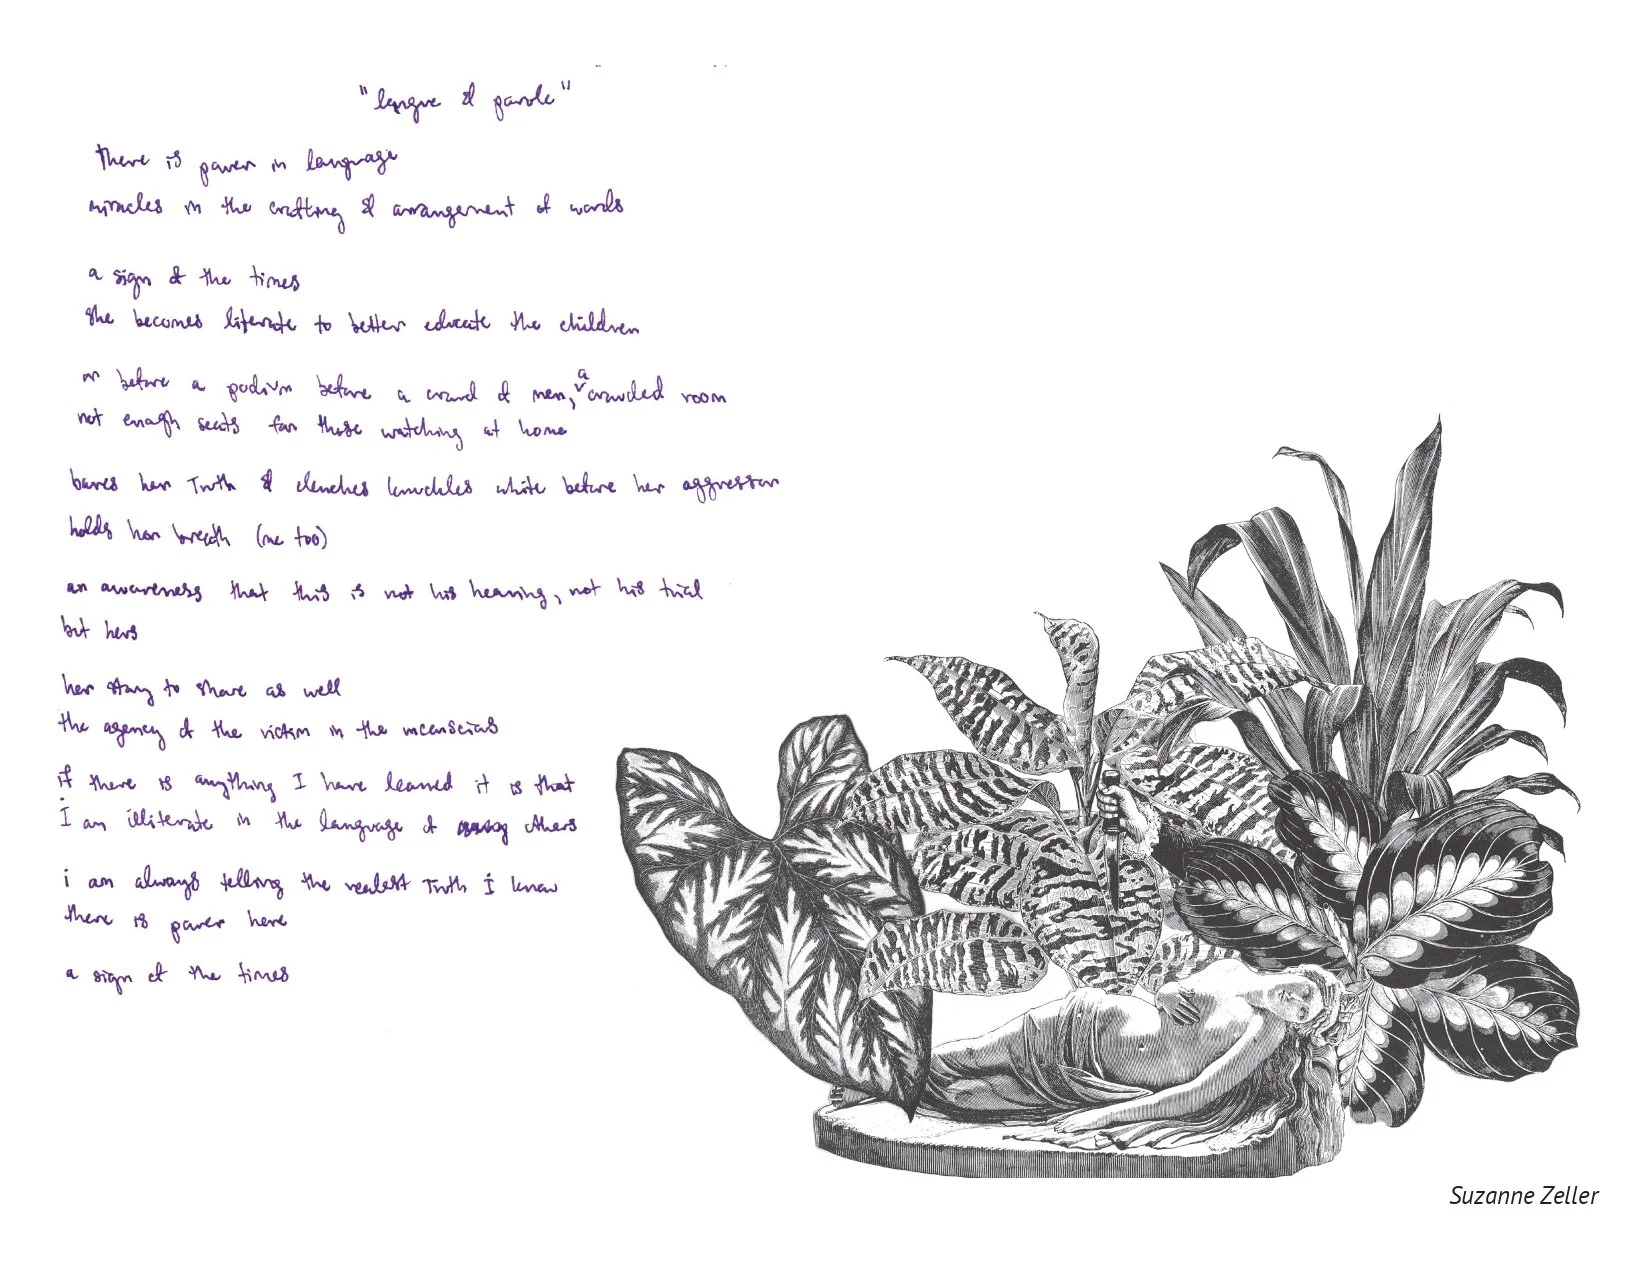 "langue & parole"
there is power in language
miracles in the crafting & arrangement of words
a sign of the times
she becomes literate to better educate the children
or before a podium before a crowd of men, a crowded room
not enough seats for those watching at home
bares her Truth & clenches knuckles white before her aggressor
holds her breath (me too)
an awareness that this is not his hearing, not his trial
but hers
her story to share as well
the agency of the victim in the
if there is anything I have learned it is that
I am illiterate in the language of others
i am always telling the realest Truth I know
there is power here
a sign of the times
Suzanne Zeller